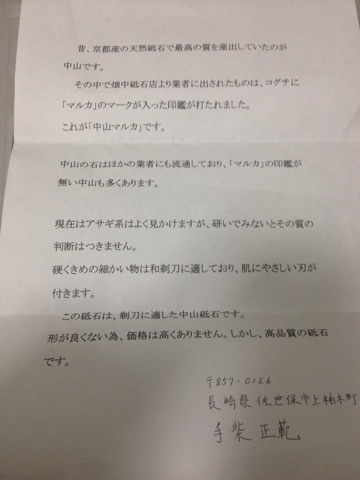 昔、京都産の天然砥石で最高の質を産出していたのが
中山です。
その中で畑中砥石店より業者に出されたものは、コグチに
「マルカ」のマークが入った印鑑が打たれました。
これが「中山マルカ」です。
中山の石はほかの業者にも流通しており、「マルカ」の印鑑が
無い中山も多くあります。
現在はアサギ系はよく見かけますが、研いでみないとその質の
判断はつきません。
硬くきめの細かい物は和剃刀に適しており、肌にやさしい刃が
付きます。
この砥石は、剃刀に適した中山砥石です。
形が良くない為、価格は高くありません。しかし、高品質の砥石
です。
〒857-0126
長崎県佐世保市上柚木町
手柴 正範